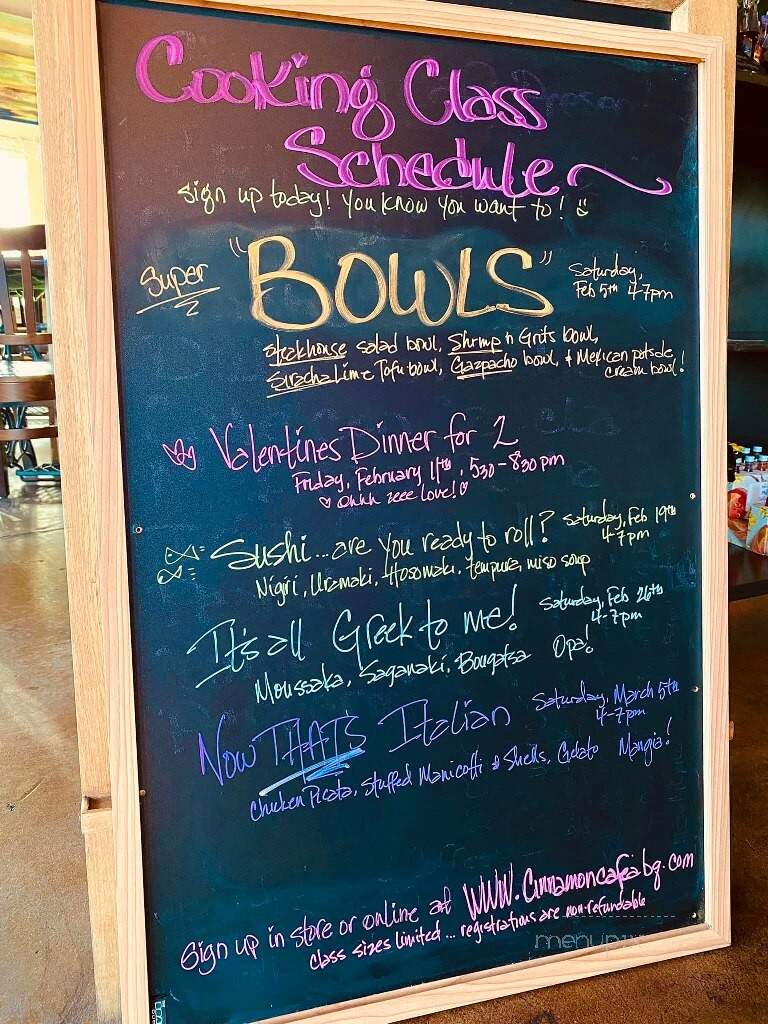 Cooking Class
Schedule
Sign up today! You know you want to!
Super "BOWLS" Saturday,
Feb 5th 4-7pm
Steakhouse salad bowl, Shrimp n Grits bowl,
Siracha Lime Tofu bowl, Gazpacho bowl, + Mexican potsde
cream bowl!
Valentines Dinner for 2
Friday, February 11th, 530-830pm
Ohhh zeee Love!
Sushi...are you ready to roll? Saturday, Feb 19th
4-7pm
Nigiri, Uramaki, Hosomaki, tempura, miso soup
It's all Greek to me! Saturday, Feb 26th
4-7pm
Moussaka, Saganaki, Bougatsa Opa!
Now THAT'S Italian Saturday, March 5th
4-7pm
Chicken Picata, Stuffed Manicotti & Shells, Gelato Mangia!
Sign up in store or online at www.Cinnamoncafeabq.com
class sizes limited... registrations are non-refundable
menupix